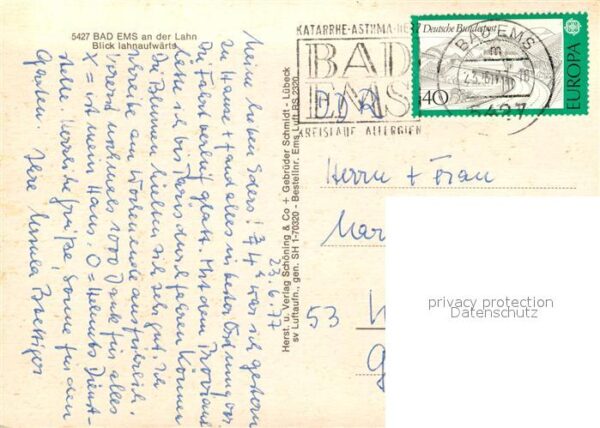 5427 BAD EMS an der Lahn
Blick lahnaufwärts
KATARRHE-ASTHMA-HERZ
BAD
EMS
KREISLAUF ALLERGIEN
Deutsche Bundespost
40
EUROPA
BAD EMS
m
5427
23.6.77
Meine lieben 3/4 4 war ich gestern
zu Haus + fand alles in bester Ordnung vor.
Die Fahrt verlief glatt. Mit dem
hätte ich bis Paris durchfahren können
Die Blumen hielten sich sehr gut. Ich
schreibe am Wochenende ausführlich.
Vorerst nochmals 1000 Dank für alles
X = ist mein Haus, O = Helmuts Dienst-
stelle. Herzliche Grüße, Sonne für den
Garten Ihre
Herst. u. Verlag Schöning & Co + Gebrüder Schmidt - Lübeck
sv Luftaufn., gen. SH 1-70320 - Bestellnr. Ems Luft BS 2320
Herrn + Frau
53
privacy protection
Datenschutz